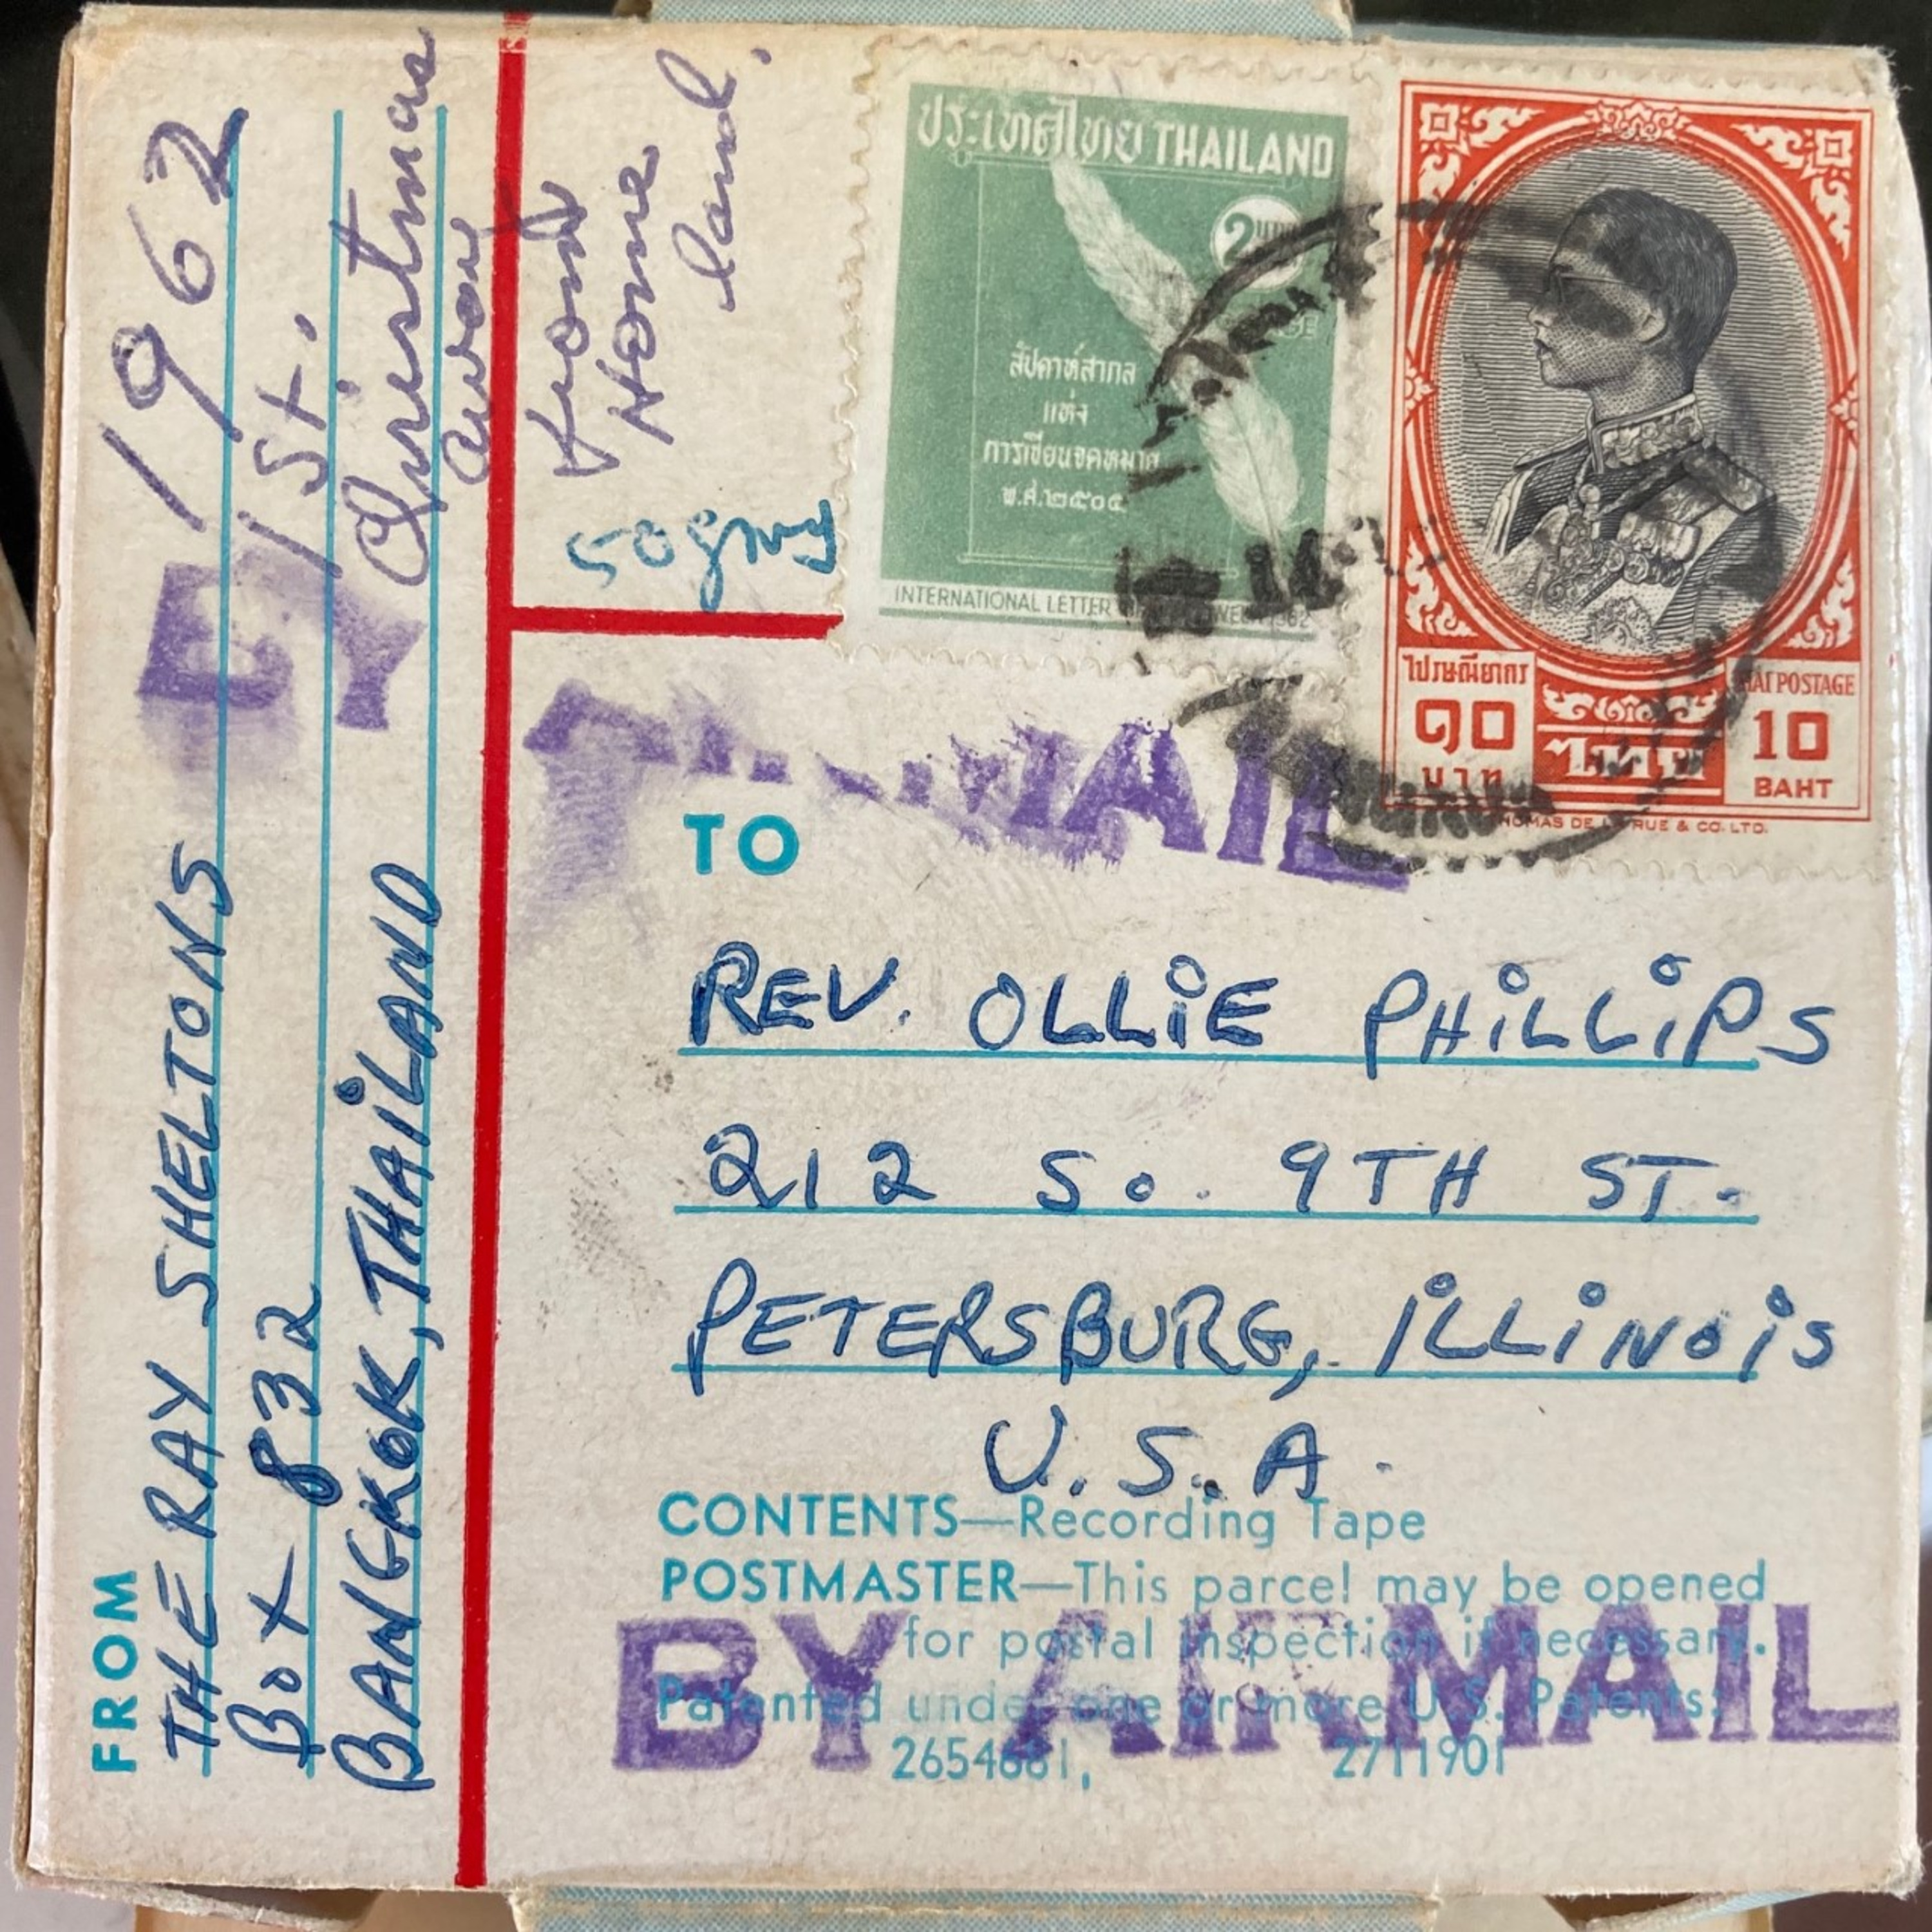 1962
1st.
Christmas
away
from
Home
land.
50 gms
ประเทศไทย THAILAND
2 บาท
สัปดาห์สากล
แห่ง
การเขียนจดหมาย
พ.ศ.๒๕๐๕
INTERNATIONAL LETTER WEEK 1962
ไปรษณียากร
THAI POSTAGE
๑๐
บาท
ไทย
10
BAHT
THOMAS DE LA RUE & CO. LTD.
BY AIR MAIL
FROM
THE RAY SHELTONS
BOX 832
BANGKOK, THAILAND
TO
REV. OLLIE PHILLIPS
212 So. 9TH ST.
PETERSBURG, ILLINOIS
U.S.A.
CONTENTS—Recording Tape
POSTMASTER—This parcel may be opened
for postal inspection if necessary.
Patented under one or more U.S. Patents:
2654681, 2711901
BY AIR MAIL